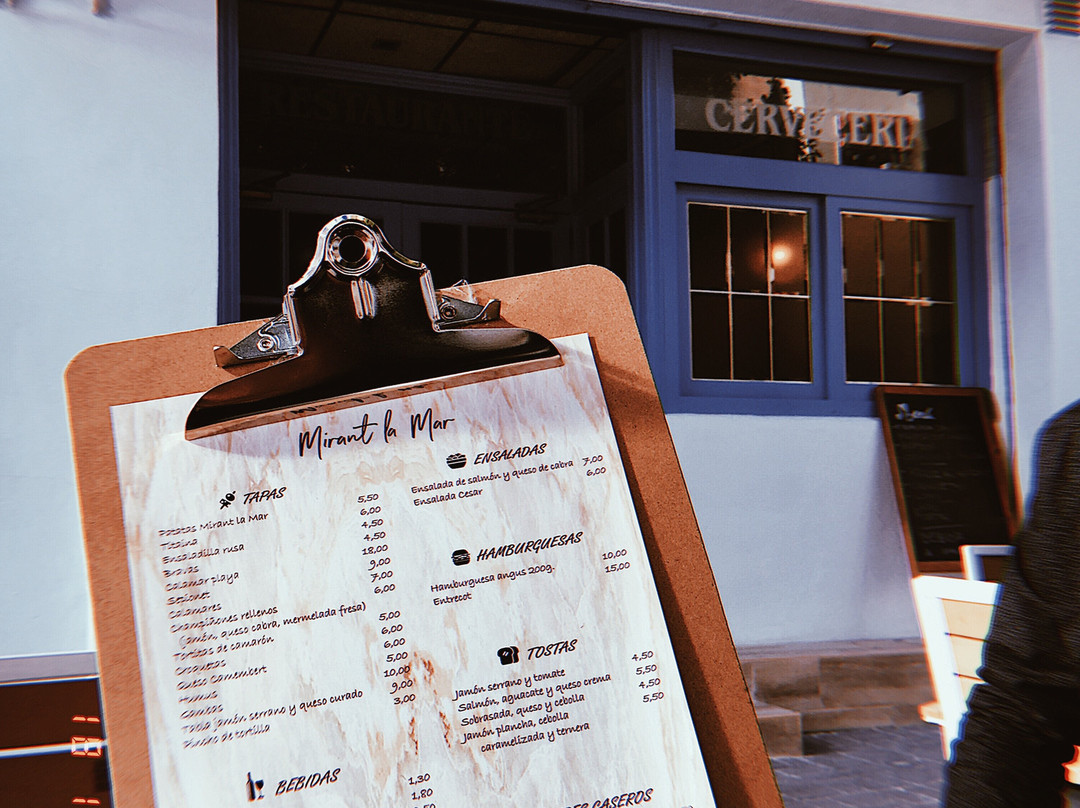 CERVECERI
Mirant la Mar
TAPAS
Patatas Mirant la Mar 5,50
Titaina 6,00
Ensaladilla rusa 4,50
Bravas 4,50
Calamar playa 18,00
Sepionet 9,00
Calamares 7,00
Champiñones rellenos 6,00
(jamón, queso cabra, mermelada fresa)
Tortitas de camarón 5,00
Croquetas 6,00
Queso Camembert 6,00
Humus 5,00
Gambas 10,00
Tabla jamón serrano y queso curado 9,00
Pincho de tortilla 3,00
BEBIDAS
1,30
1,80
ENSALADAS
Ensalada de salmón y queso de cabra 7,00
Ensalada Cesar 6,00
HAMBURGUESAS
Hamburguesa angus 200g. 10,00
Entrecot 15,00
TOSTAS
Jamón serrano y tomate 4,50
Salmón, aguacate y queso crema 5,50
Sobrasada, queso y cebolla 4,50
Jamón plancha, cebolla 5,50
caramelizada y ternera
CASEROS